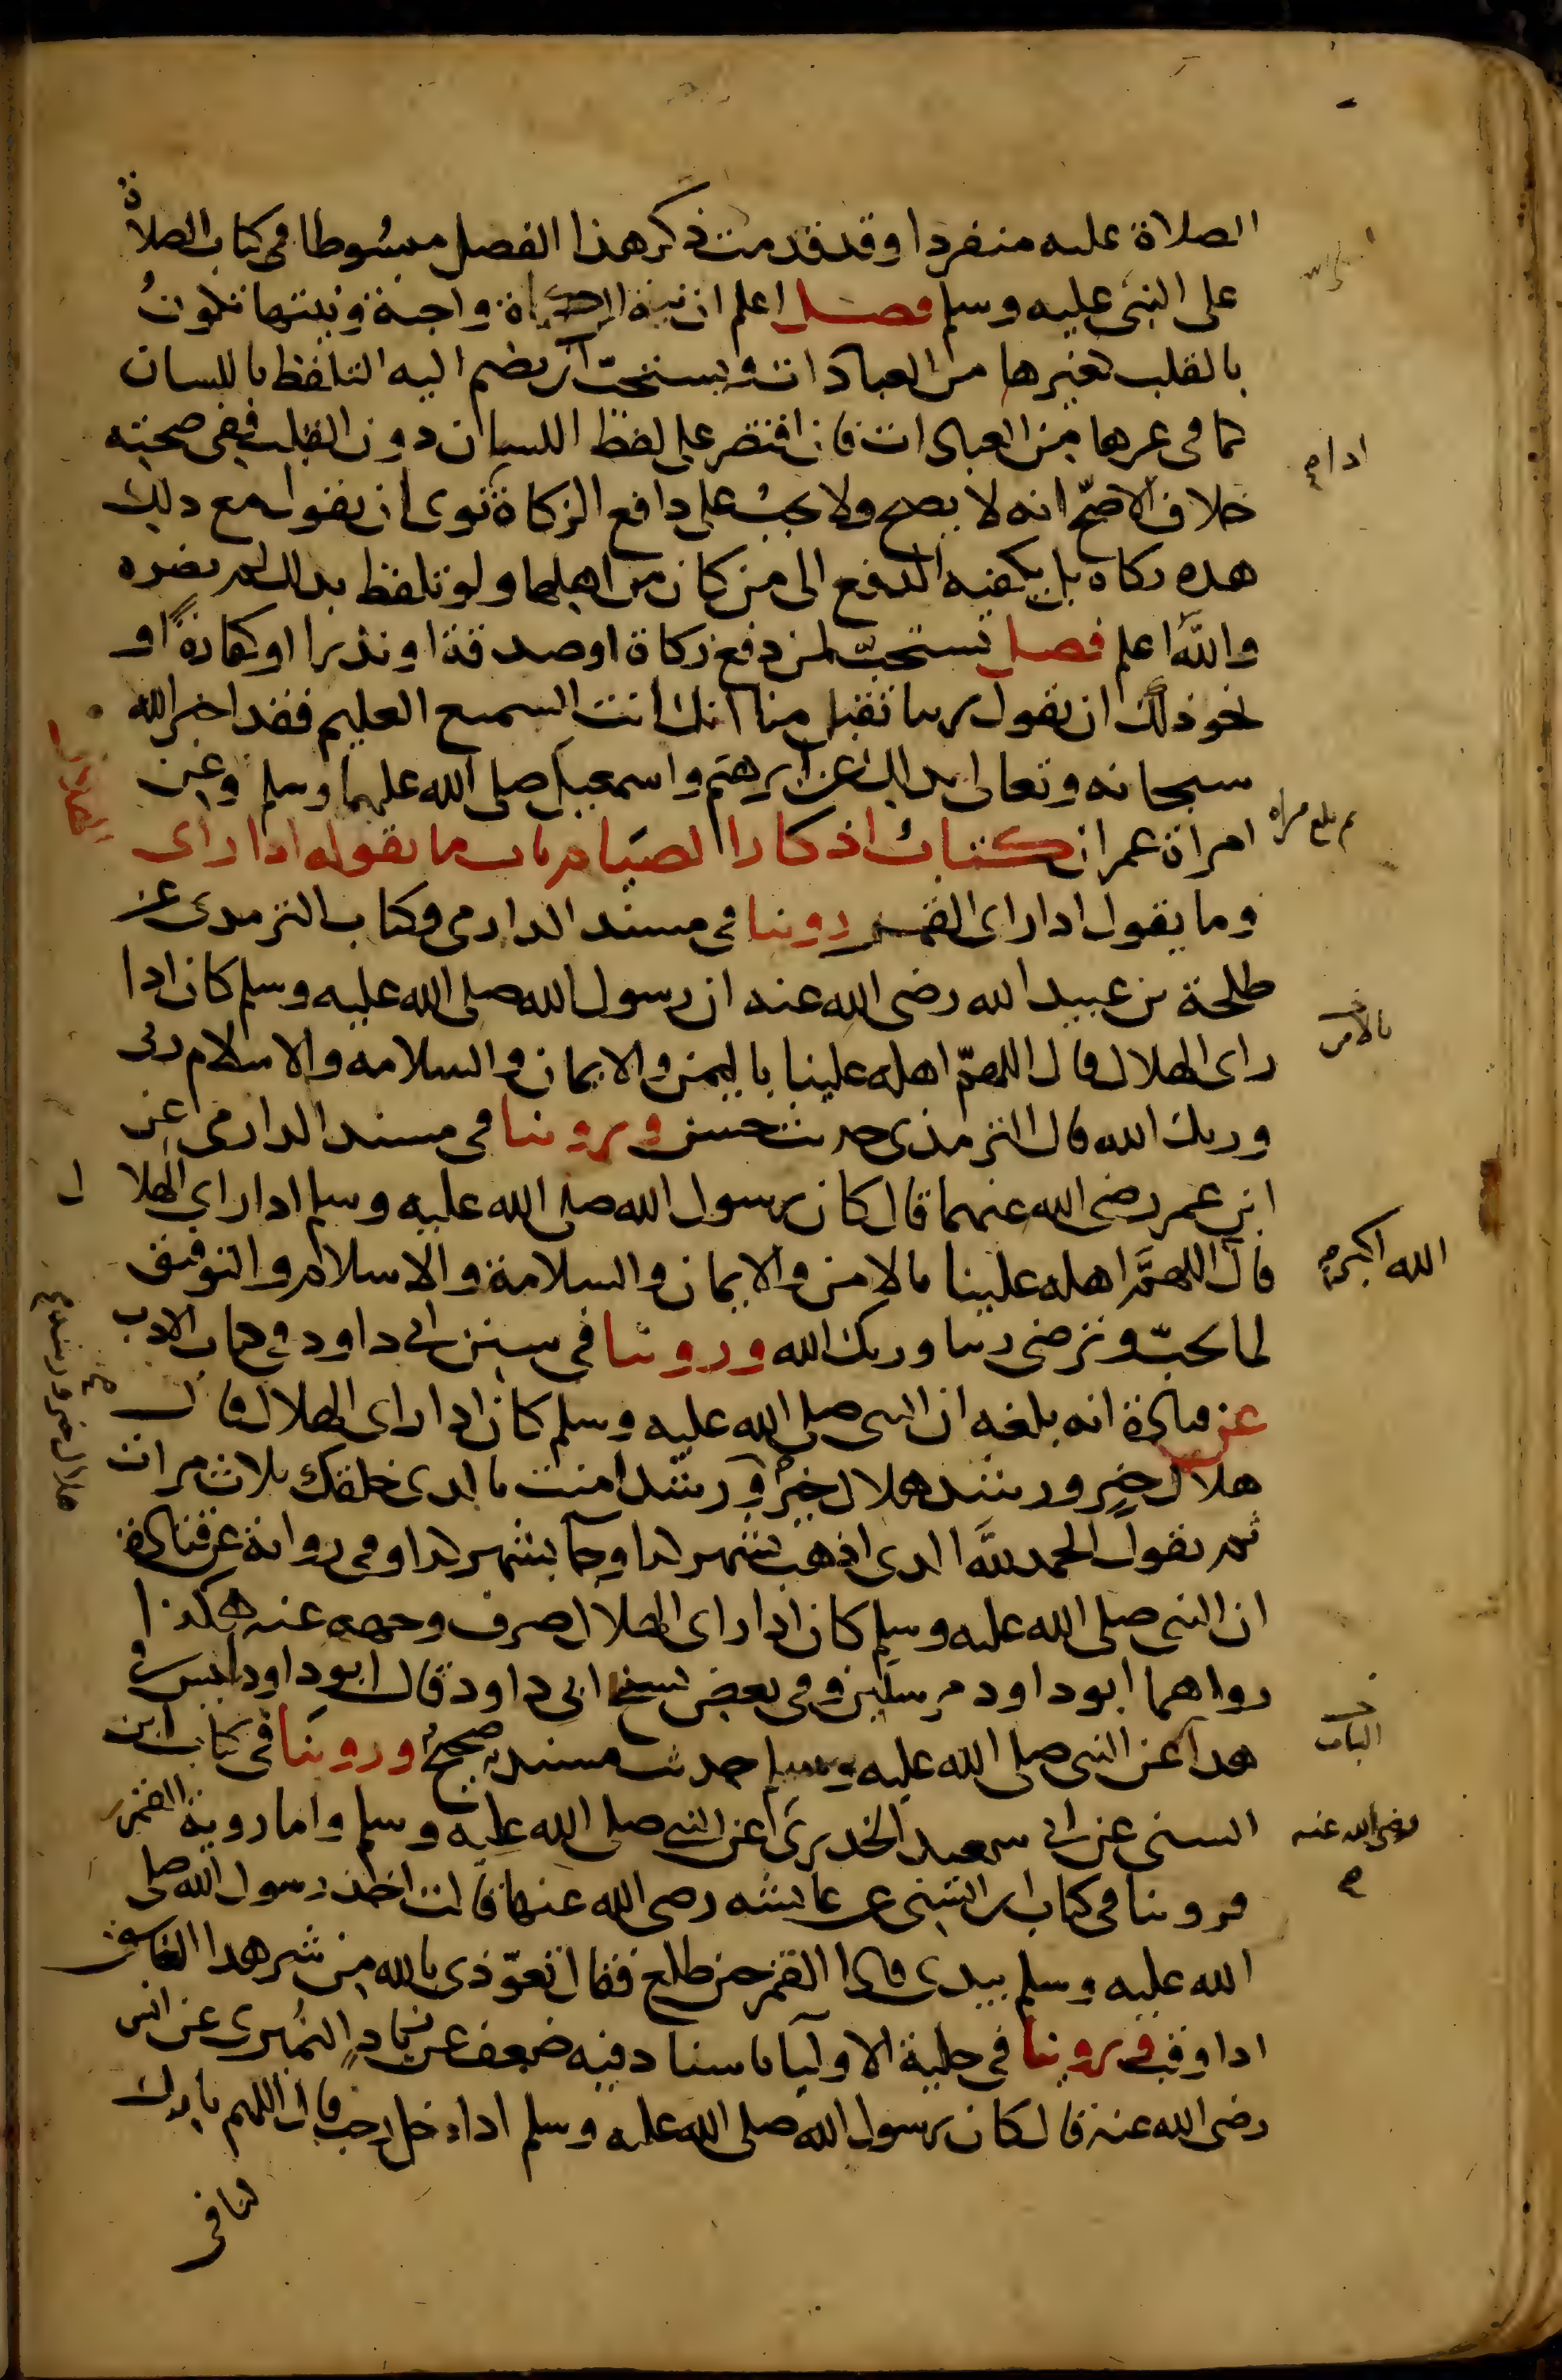 الصلاة عليه منفردا وقد قدمت ذكر هذا الفصل مبسوطا في كتاب الصلاة
على النبي عليه وسلم فصل اعلم ان نية الزكاة واجبة ونيتها تكون
بالقلب كغيرها من العبادات ويستحب ان يضم اليه التلفظ باللسان
كما في غيرها من العبادات فان اقتصر على لفظ اللسان دون القلب ففي صحته
خلاف الاصح انه لا يصح ولا يجب على دافع الزكاة نوى ان يقول مع ذلك
اذا
هذه زكاة بل يكفيه الدفع الى من كان من اهلها ولو تلفظ بذلك لم يضره
والله اعلم فصل يستحب لمن دفع زكاة او صدقة او نذرا او كفارة او
نحو ذلك ان يقول ربنا تقبل منا انك انت السميع العليم فقد اخبر الله
سبحانه وتعالى بذلك عن ابرهيم واسمعيل صلى الله عليهما وسلم وعن
امراة عمران كتاب اذكار الصيام باب ما يقوله اذا راى
الهلال
وما يقول اذا راى القمر روينا في مسند الدارمي وكتاب الترمذي عن
طلحة بن عبيد الله رضي الله عنه ان رسول الله صلى الله عليه وسلم كان اذا
راى الهلال قال اللهم اهله علينا باليمن والايمان والسلامه والاسلام ربي
بالامن
وربك الله قال الترمذي حديث حسن وروينا في مسند الدارمي عن
ابن عمر رضي الله عنهما قال كان رسول الله صلى الله عليه وسلم اذا راى الهلا
ل
قال اللهم اهله علينا بالامن والايمان والسلامة والاسلام والتوفيق
الله اكبر
لما تحب وترضى ربنا وربك الله وروينا في سنن ابي داود في كتاب الادب
عن قتادة انه بلغه ان النبي صلى الله عليه وسلم كان اذا راى الهلال قال
هلال خير ورشد هلال خير ورشد امنت بالذي خلقك ثلاث مرات
هلال خير ورشد
ثم يقول الحمد لله الذي اذهب بشهر كذا وجا بشهر كذا وفي رواية عن قتادة
ان النبي صلى الله عليه وسلم كان اذا راى الهلال صرف وجهه عنه هكذا
رواهما ابو داود مرسلين وفي بعض نسخ ابي داود قال ابو داود ليس في
هذا عن النبي صلى الله عليه وسلم حديث مسند صحيح وروينا في كتاب ابن
الباب
السني عن ابي سعيد الخدري عن النبي صلى الله عليه وسلم واما روية القمر
رضي الله عنه
فروينا في كتاب ابن السني عن عايشه رضي الله عنها قالت اخذ رسول الله صلى
الله عليه وسلم بيدي فاذا القمر حين طلع فقال تعوذي بالله من شر هذا الغاسق
اذا وقب وروينا في حلية الاوليا باسناد فيه ضعف عن زياد النميري عن انس
رضي الله عنه قال كان رسول الله صلى الله عليه وسلم اذا دخل رجب قال اللهم بارك
لنا في